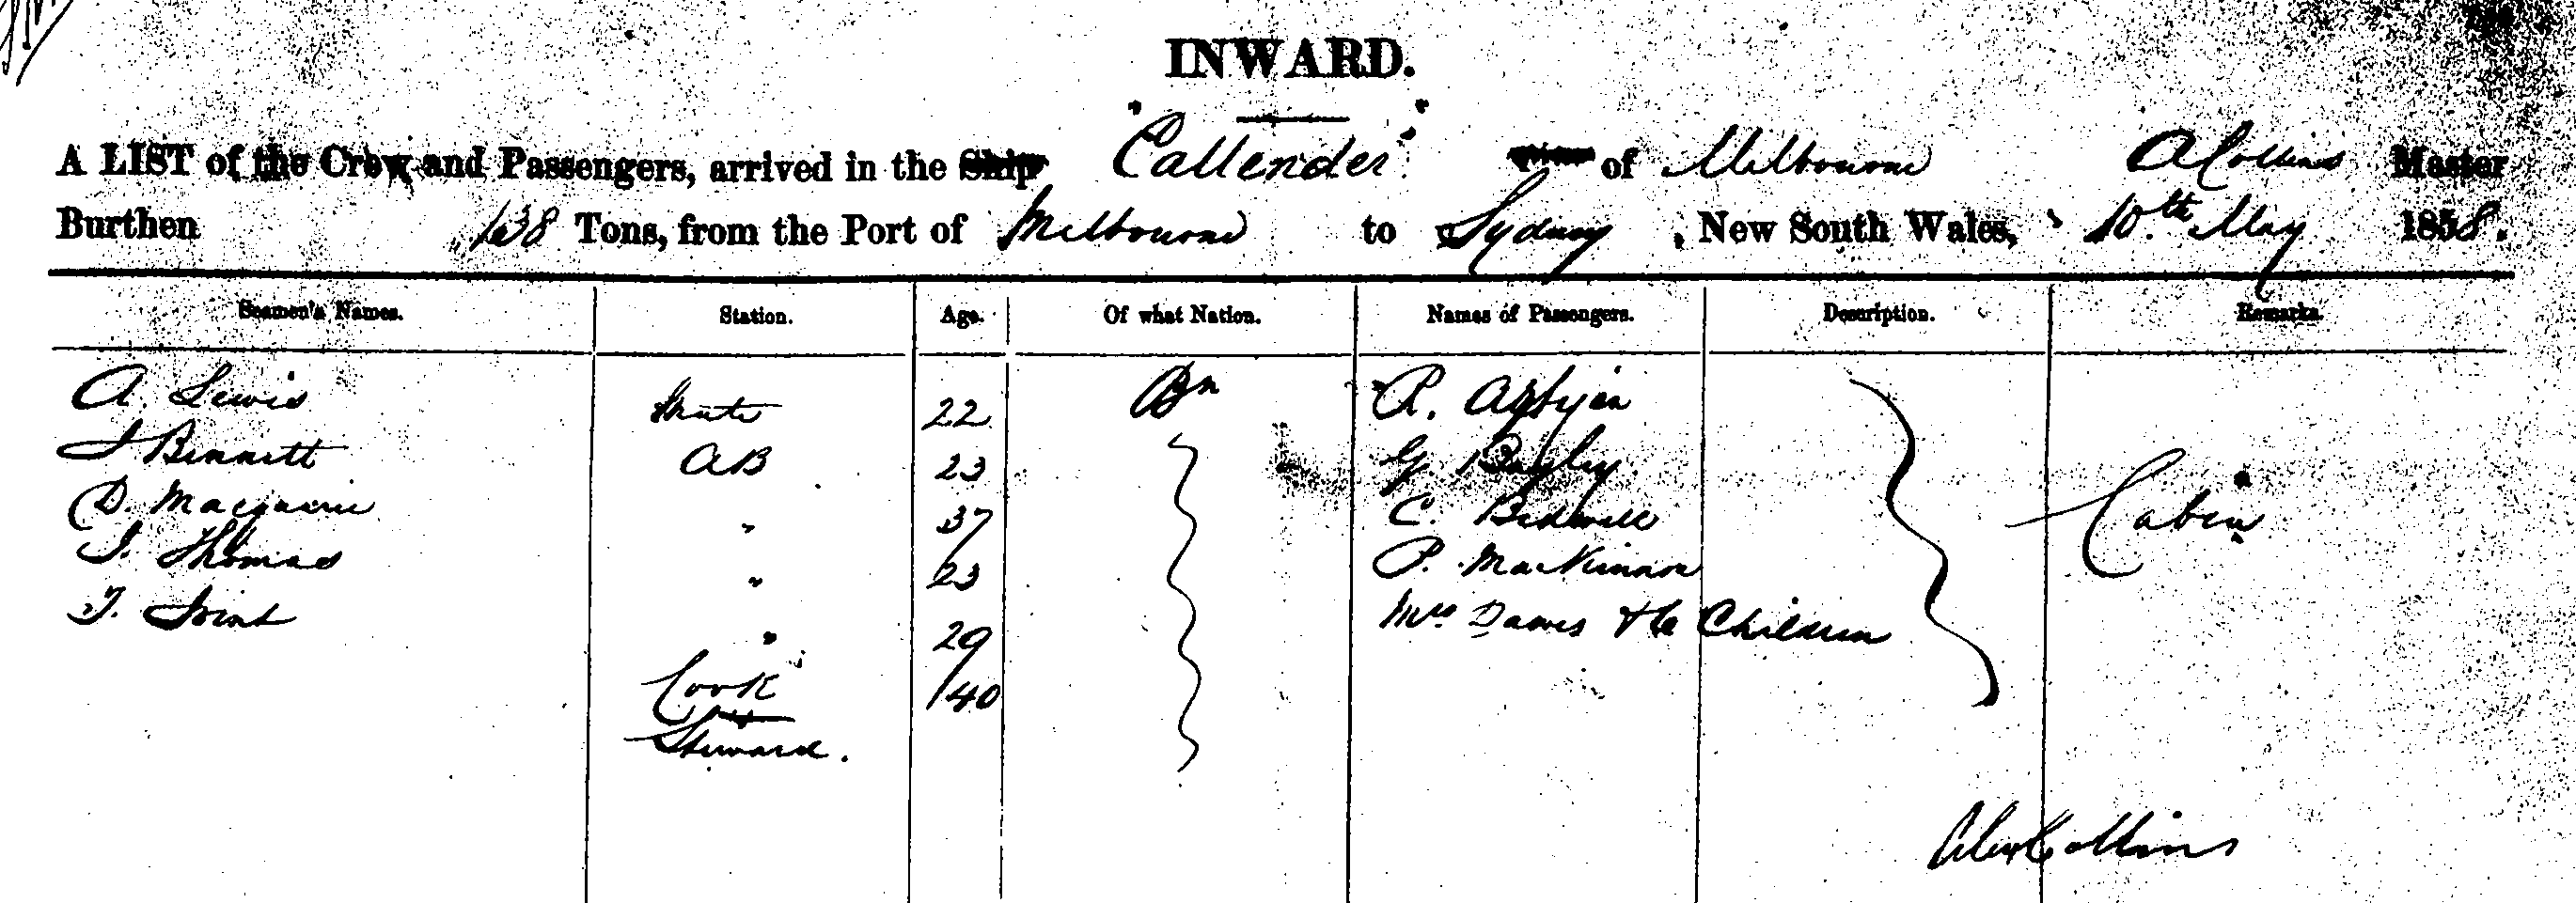 INWARD.
A LIST of the Crew and Passengers, arrived in the Ship "Callender" of Melbourne A Collins Master
Burthen 138 Tons, from the Port of Melbourne to Sydney, New South Wales, 10th May 1858.
Seamen's Names. Station. Age. Of what Nation. Names of Passengers. Description. Remarks.
A. Lewis Mate 22 Bn R.
J Bennett AB 23 G. Bayly
D. Macquarie " 37 C. Bidwell Cabin
J. Thomas " 23 P. MacKinnon
T. " 29 Mrs Dawes & Children
Cook 40
Steward.
Alex Collins